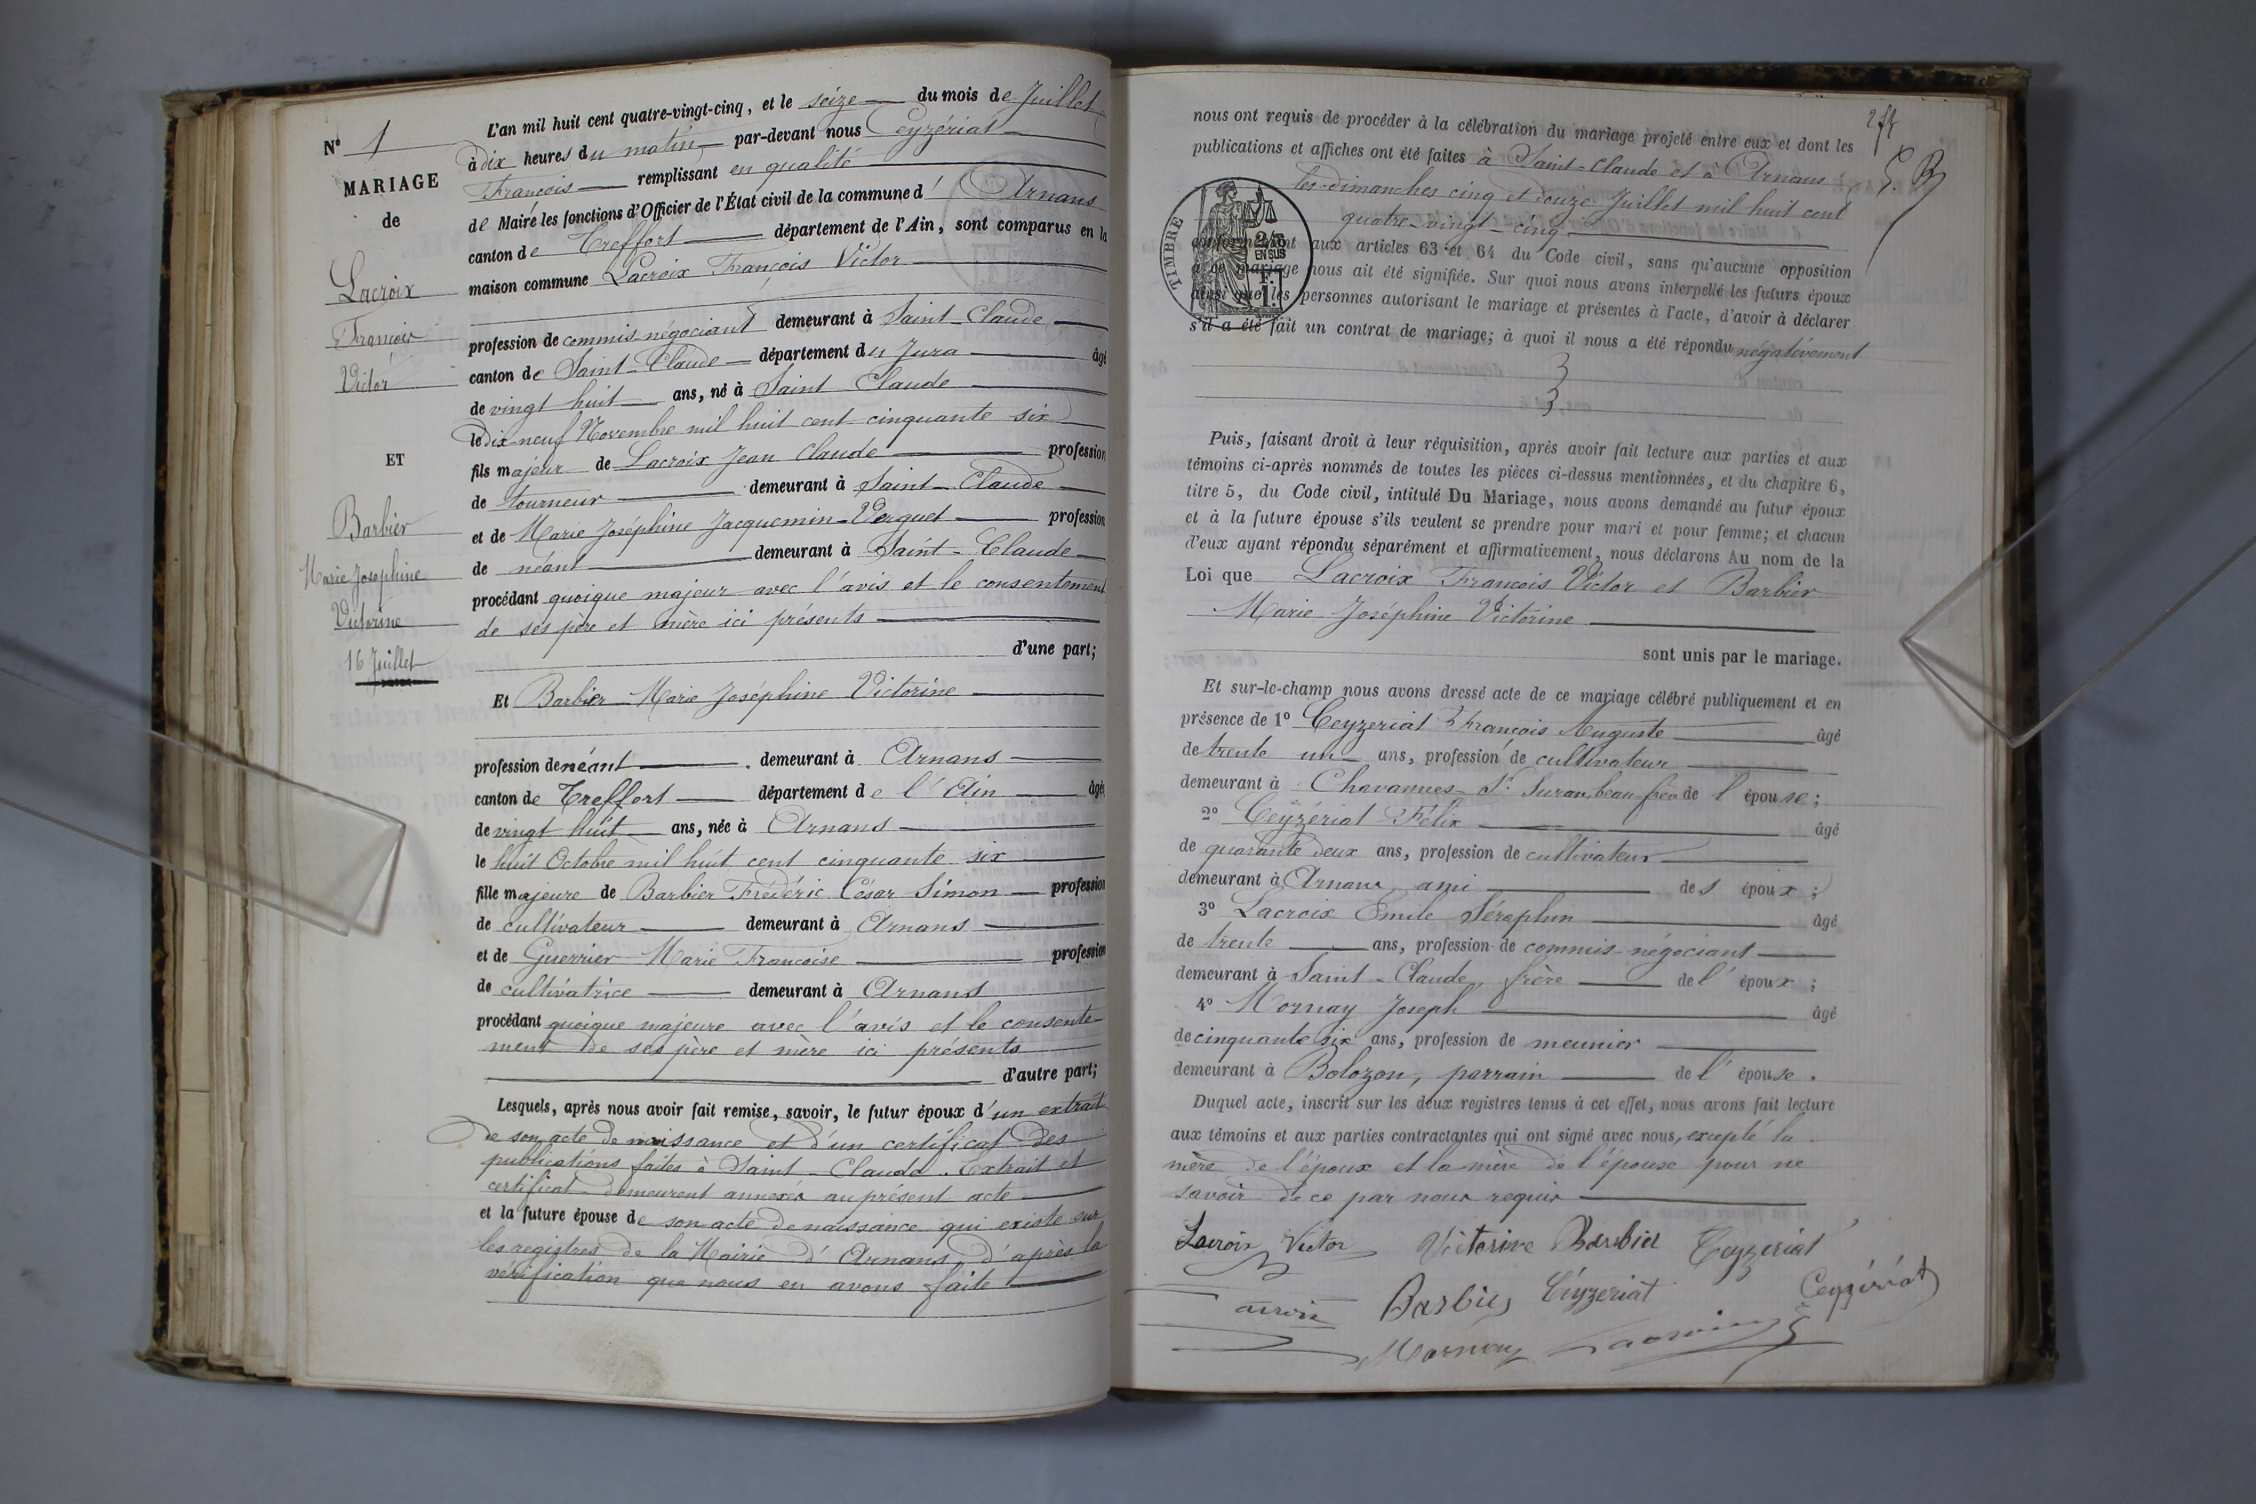 N° 1
MARIAGE
de
Lacroix
François
Victor
ET
Barbier
Marie Joséphine
Victorine
16 Juillet
L'an mil huit cent quatre-vingt-cinq, et le seize du mois de Juillet
à dix heures du matin par-devant nous Ceyzériat
François remplissant en qualité
de Maire les fonctions d'Officier de l'État civil de la commune d'Arnans
canton de Treffort département de l'Ain, sont comparus en la
maison commune Lacroix François Victor
profession de commis négociant demeurant à Saint-Claude
canton de Saint-Claude département du Jura âgé
de vingt huit ans, né à Saint Claude
le dix-neuf Novembre mil huit cent cinquante six
fils majeur de Lacroix Jean Claude profession
de tourneur demeurant à Saint-Claude
et de Marie Joséphine Jacquemin-Verguet profession
de néant demeurant à Saint-Claude
procédant quoique majeur avec l'avis et le consentement
de ses père et mère ici présents
d'une part;
Et Barbier Marie Joséphine Victorine
profession de néant demeurant à Arnans
canton de Treffort département de l'Ain âgée
de vingt huit ans, née à Arnans
le huit Octobre mil huit cent cinquante six
fille majeure de Barbier Frédéric César Simon profession
de cultivateur demeurant à Arnans
et de Guerrier Marie Françoise profession
de cultivatrice demeurant à Arnans
procédant quoique majeure avec l'avis et le consente-
ment de ses père et mère ici présents
d'autre part;
Lesquels, après nous avoir fait remise, savoir, le futur époux d'un extrait
de son acte de naissance et d'un certificat des
publications faites à Saint-Claude. Extrait et
certificat demeurent annexés au présent acte
et la future épouse de son acte de naissance qui existe sur
les registres de la Mairie d'Arnans d'après la
vérification que nous en avons faite
nous ont requis de procéder à la célébration du mariage projeté entre eux et dont les
publications et affiches ont été faites à Saint-Claude et à Arnans
les dimanches cinq et douze Juillet mil huit cent
quatre-vingt-cinq
TIMBRE
2/10
EN SUS
F.
1.
conformément aux articles 63 et 64 du Code civil, sans qu'aucune opposition
à ce mariage nous ait été signifiée. Sur quoi nous avons interpellé les futurs époux
ainsi que les personnes autorisant le mariage et présentes à l'acte, d'avoir à déclarer
s'il a été fait un contrat de mariage; à quoi il nous a été répondu négativement
Puis, faisant droit à leur réquisition, après avoir fait lecture aux parties et aux
témoins ci-après nommés de toutes les pièces ci-dessus mentionnées, et du chapitre 6,
titre 5, du Code civil, intitulé Du Mariage, nous avons demandé au futur époux
et à la future épouse s'ils veulent se prendre pour mari et pour femme; et chacun
d'eux ayant répondu séparément et affirmativement, nous déclarons Au nom de la
Loi que Lacroix François Victor et Barbier
Marie Joséphine Victorine
sont unis par le mariage.
Et sur-le-champ nous avons dressé acte de ce mariage célébré publiquement et en
présence de 1° Ceyzeriat François Auguste âgé
de trente un ans, profession de cultivateur
demeurant à Chavannes-sr-Suran, beau-frère de l'épouse;
2° Ceyzériat Félix âgé
de quarante deux ans, profession de cultivateur
demeurant à Arnans, ami des époux;
3° Lacroix Emile Séraphin âgé
de trente ans, profession de commis-négociant
demeurant à Saint-Claude, frère de l'époux;
4° Mornay Joseph âgé
de cinquante six ans, profession de meunier
demeurant à Bolozon, parrain de l'épouse.
Duquel acte, inscrit sur les deux registres tenus à cet effet, nous avons fait lecture
aux témoins et aux parties contractantes qui ont signé avec nous, excepté la
mère de l'époux et la mère de l'épouse pour ne
savoir de ce par nous requis
Lacroix Victor Victorine Barbier Ceyzeriat
Barbier Ceyzeriat Ceyzériat
Mornay Lacroix